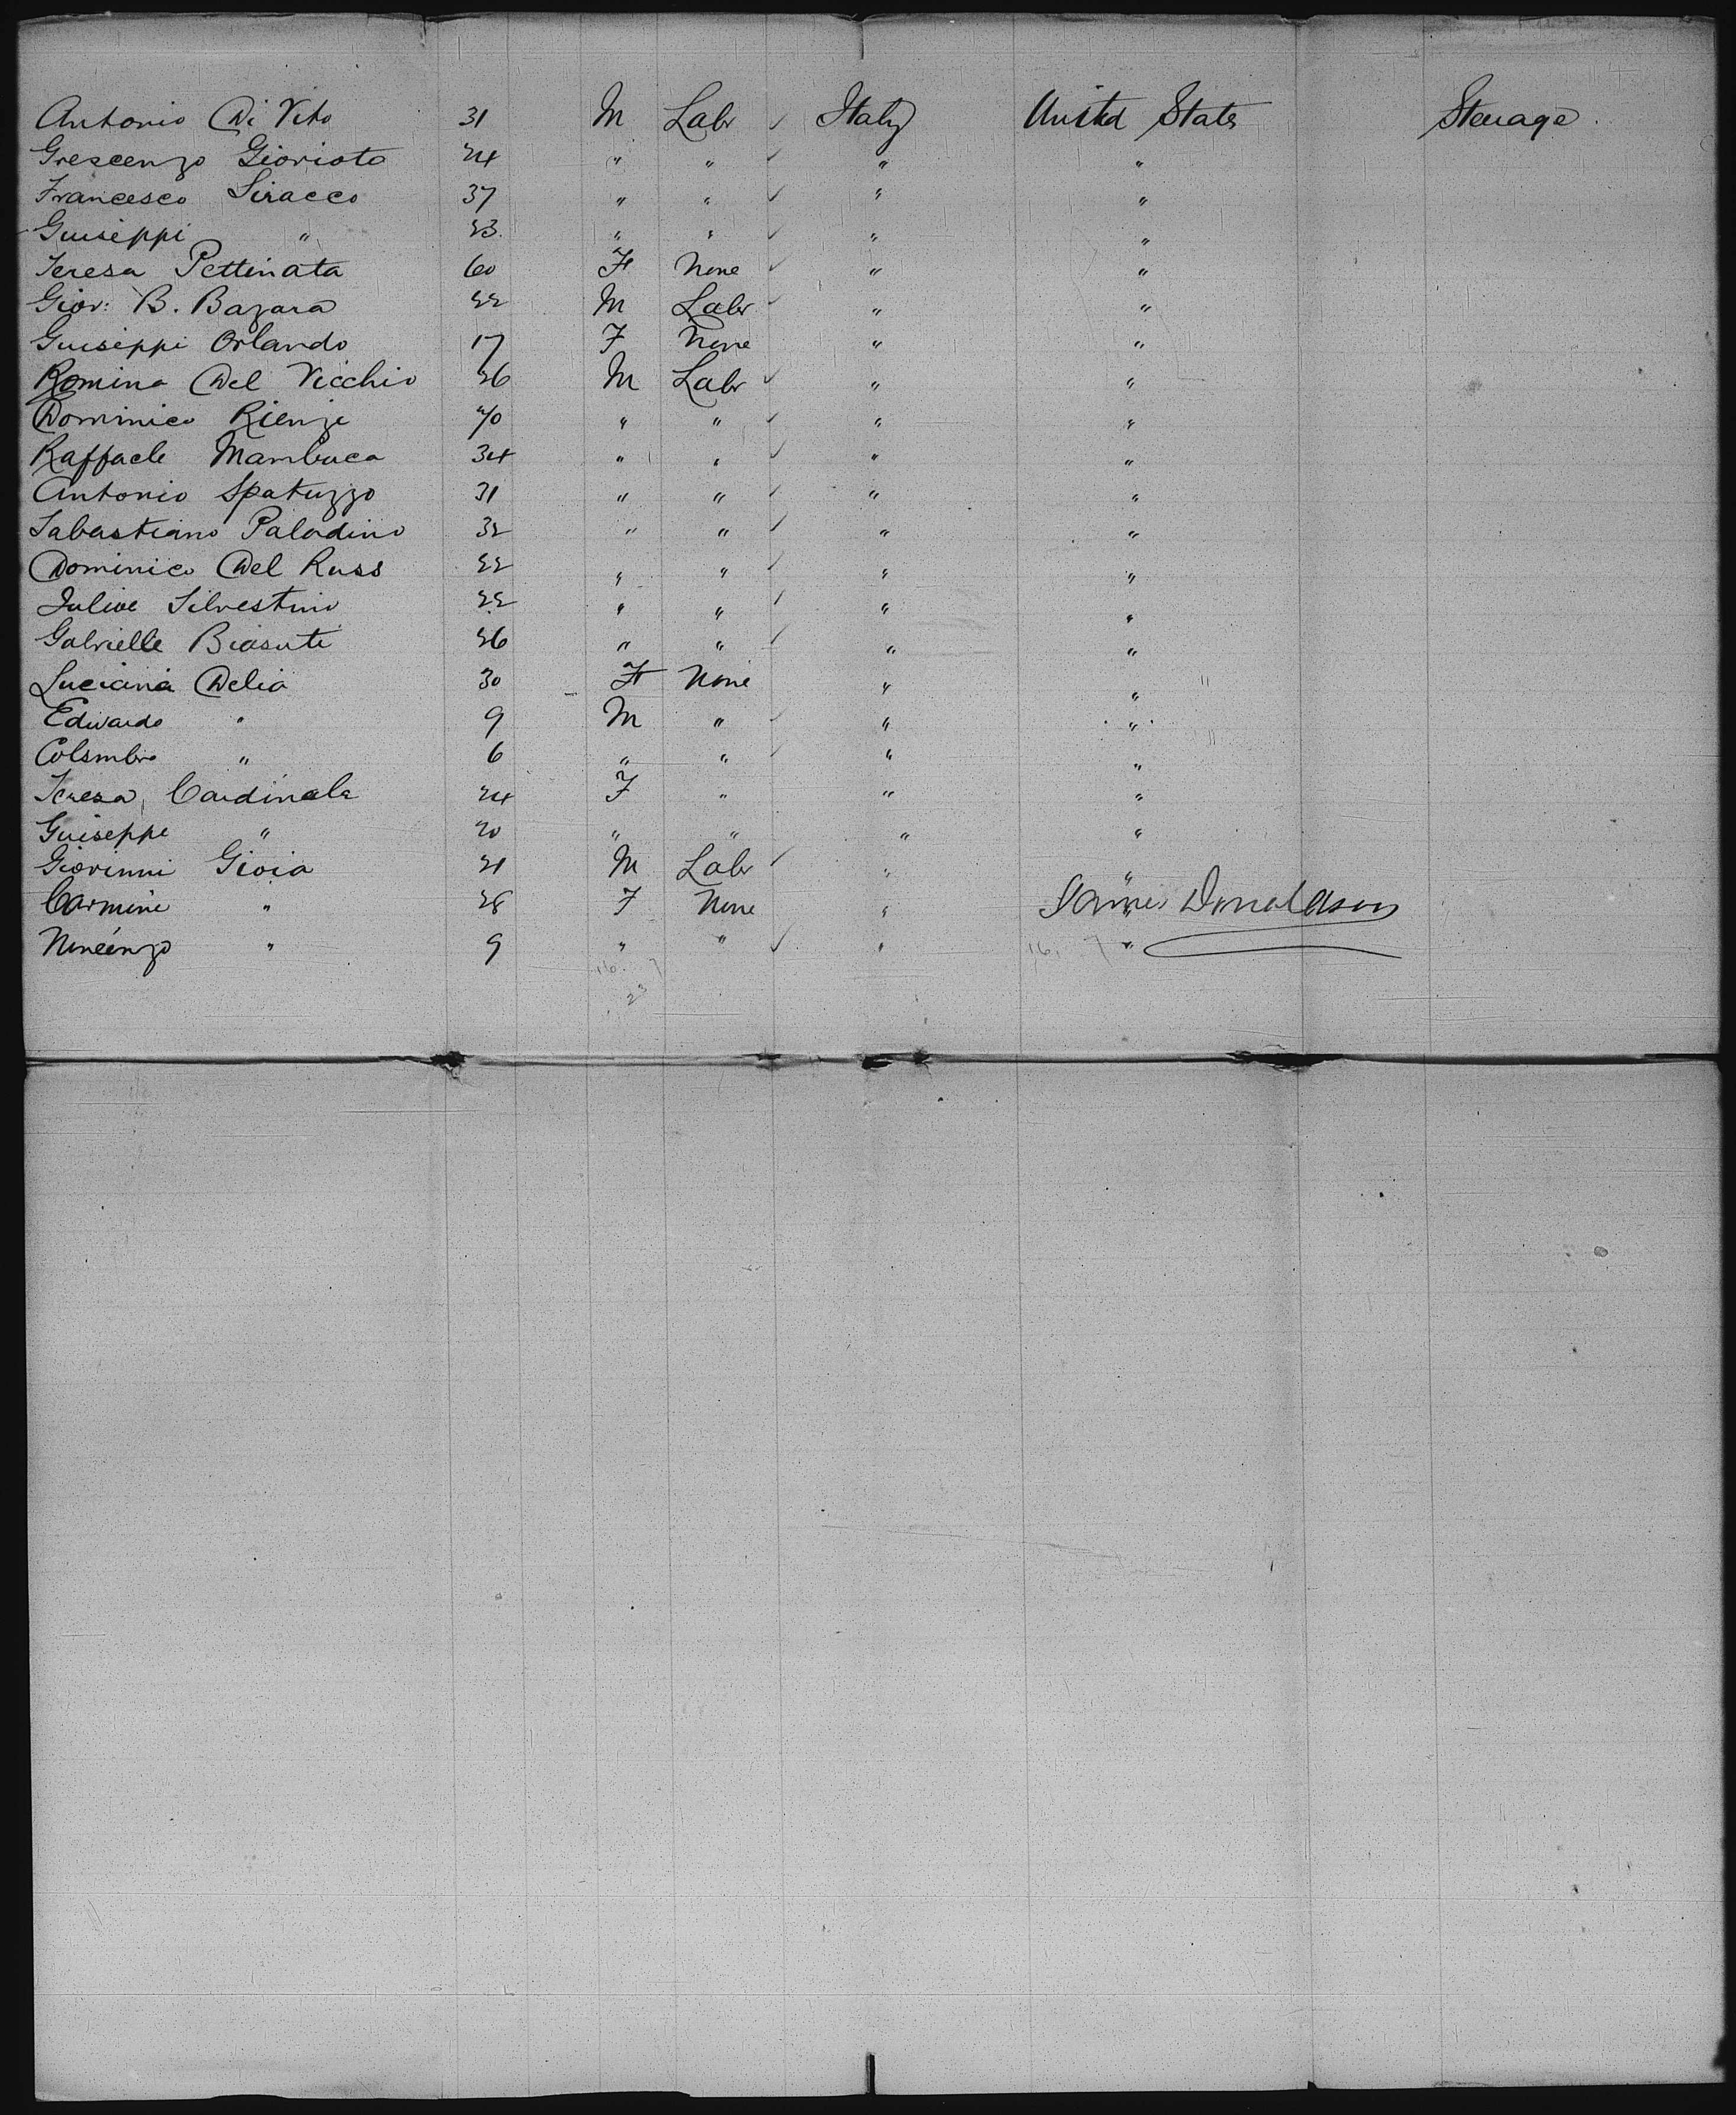 Antonio Di Vito 31 M Labr ✓ Italy United States Steerage
Grescenzo Giorioto 24 " " ✓ " "
Francesco Siracco 37 " " ✓ " "
Guiseppi " 23 " " ✓ " "
Teresa Pettinata 60 F None ✓ " "
Giov: B. Bazara 22 M Labr ✓ " "
Guiseppi Orlando 17 F None " "
Romina Del Vicchio 26 M Labr ✓ " "
Dominico Rienze " " ✓ " "
Raffaele Mambuca 34 " " ✓ " "
Antonio Spatuzzo 31 " " ✓ " "
Sabastiano Paladino 32 " " ✓ " "
Dominico Del Russ 22 " " ✓ " "
Silvestino 22 " " ✓ " "
Gabrielle Biasuti 26 " " ✓ " "
Luciana Delia 30 F None " "
Edwardo " 9 M " ✓ " "
Colombo " 6 " " ✓ " "
Teresa Cardinale 24 F " " "
Guiseppe " 20 " " " "
Giovinni Gioia 21 M Labr ✓ " "
Carmine " 28 F None " "
James Donaldson
" 9 " " ✓ " "
16. 7 16. 7
23